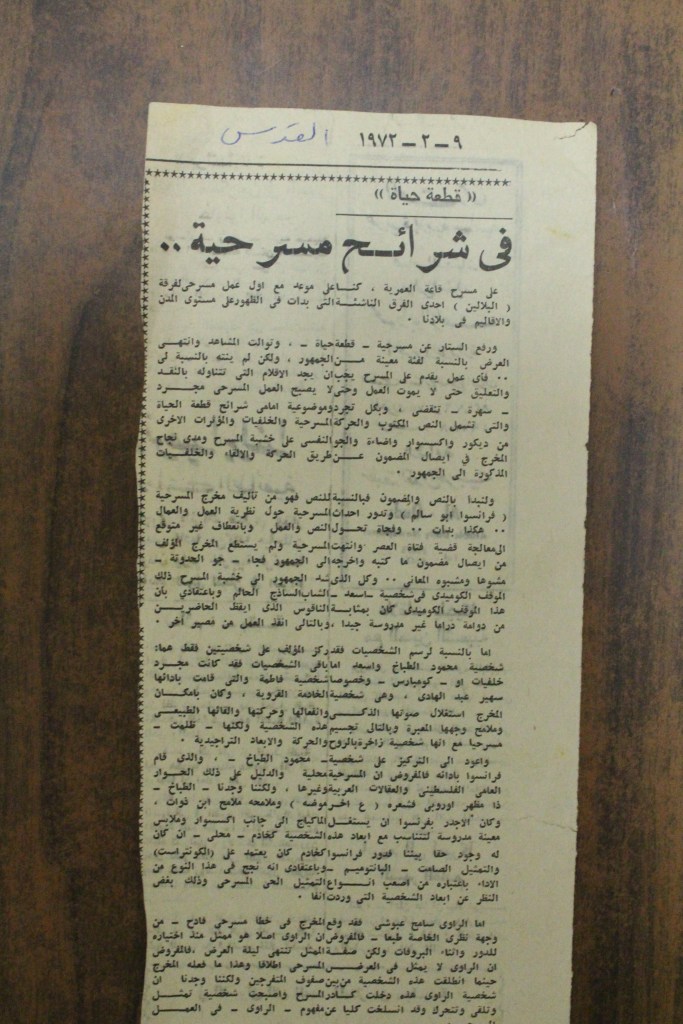 القدس ٩ - ٢ - ١٩٧٢
(( قطعة حياة ))
فى شرائح مسرحية ..
على مسرح قاعة العمرية ، كنا على موعد مع اول عمل مسرحى لفرقة
( البلالين ) احدى الفرق الناشئة التى بدات فى الظهور على مستوى المدن
والاقاليم فى بلادنا .
ورفع الستار عن مسرحية ـ قطعة حياة ـ ، وتوالت المشاهد وانتهى
العرض بالنسبة لفئة معينة من الجمهور ، ولكن لم ينته بالنسبة لى
.. فأى عمل يقدم على المسرح يجب ان يجد الاقلام التى تتناوله بالنقد
والتعليق حتى لا يموت العمل وحتى لا يصبح العمل المسرحى مجرد
ـ سهرة ـ تنقضى ، وبكل تجرد وموضوعية امامى شرائح قطعة الحياة
والتى تشمل النص المكتوب والحركة المسرحية والخلفيات والمؤثرات الاخرى
من ديكور واكسسوار واضاءة والجو النفسى على خشبة المسرح ومدى نجاح
المخرج في ايصال المضمون عن طريق الحركة والالقاء والخلفيات
المذكورة الى الجمهور .
ولنبدا بالنص والمضمون فبالنسبة للنص فهو من تاليف مخرج المسرحية
( فرانسوا ابو سالم ) وتدور احداث المسرحية حول نظرية العمل والعمال
.. هكذا بدات .. وفجاة تحول النص والعمل وبانعطاف غير متوقع
الى معالجة قضية فتاة العصر وانتهت المسرحية ولم يستطع المخرج المؤلف
من ايصال مضمون ما كتبه واخرجه الى الجمهور فجاء ـ جو الحدوتة ـ
مشوها ومشبوه المعانى .. وكل الذى شد الجمهور الى خشبة المسرح ذلك
الموقف الكوميدى فى شخصية ـ اسعد ـ الشاب الساذج الحالم وباعتقادي بأن
هذا الموقف الكوميدى كان بمثابة الناقوس الذى ايقظ الحاضرين
من دوامة دراما غير مدروسة جيدا ، وبالتالى انقذ العمل من مصير اخر .
اما بالنسبة لرسم الشخصيات فقد ركز المؤلف على شخصيتين فقط هما:
شخصية محمود الطباخ واسعد اما باقى الشخصيات فقد كانت مجرد
خلفيات او ـ كومبارس ـ وخصوصا شخصية فاطمة والتى قامت بادائها
سهير عبد الهادى ، وهى شخصية الخادمة القروية ، وكان بامكان
المخرج استغلال صوتها الذكى وانفعالها وحركتها والقائها الطبيعى
وملامح وجهها المعبرة وبالتالى تجسيم هذه الشخصية ولكنها ـ ظلمت ـ
مسرحيا مع انها شخصية زاخرة بالروح والحركة والابعاد التراجيدية .
واعود الى التركيز على شخصية ـ محمود الطباخ ـ ، والذى قام
فرانسوا بادائه فالمفروض ان المسرحية محلية والدليل على ذلك الحوار
العامى الفلسطينى والعقالات العربية وغيرها ، ولكننا وجدنا ـ الطباخ ـ
ذا مظهر اوروبى فشعره ( ع اخر موضه ) وملامحه ملامح ابن ذوات ،
وكان الاجدر بفرنسوا ان يستغل الماكياج الى جانب اكسسوار وملابس
معينة مدروسة لتتناسب مع ابعاد هذه الشخصية كخادم ـ محلى ـ ان كان
له وجود حقا بيننا فدور فرانسوا كخادم كان يعتمد على (الكونتراست)
والتمثيل الصامت ـ البانتوميم ـ وباعتقادى انه نجح فى هذا النوع من
الاداء باعتباره من اصعب انواع التمثيل الحى المسرحى وذلك بغض
النظر عن ابعاد الشخصية التى وردت انفا .
اما الراوى سامح عبوشى فقد وقع المخرج فى خطأ مسرحى فادح ـ من
وجهة نظرى الخاصة طبعا ـ فالمفروض ان الراوى اصلا هو ممثل منذ اختياره
للدور واثناء البروفات ولكن صفة الممثل تنتهى ليلة العرض ، فالمفروض
ان الراوى لا يمثل فى العرض المسرحى اطلاقا وهذا ما فعله المخرج
حينما انطلقت هذه الشخصية من بين صفوف المتفرجين ولكننا وجدنا ان
شخصية الراوى هذه دخلت كادر المسرح واصبحت شخصية تمثل
وتلقى وتتحرك وقد انسلخت كليا عن مفهوم ـ الراوى ـ فى العمل